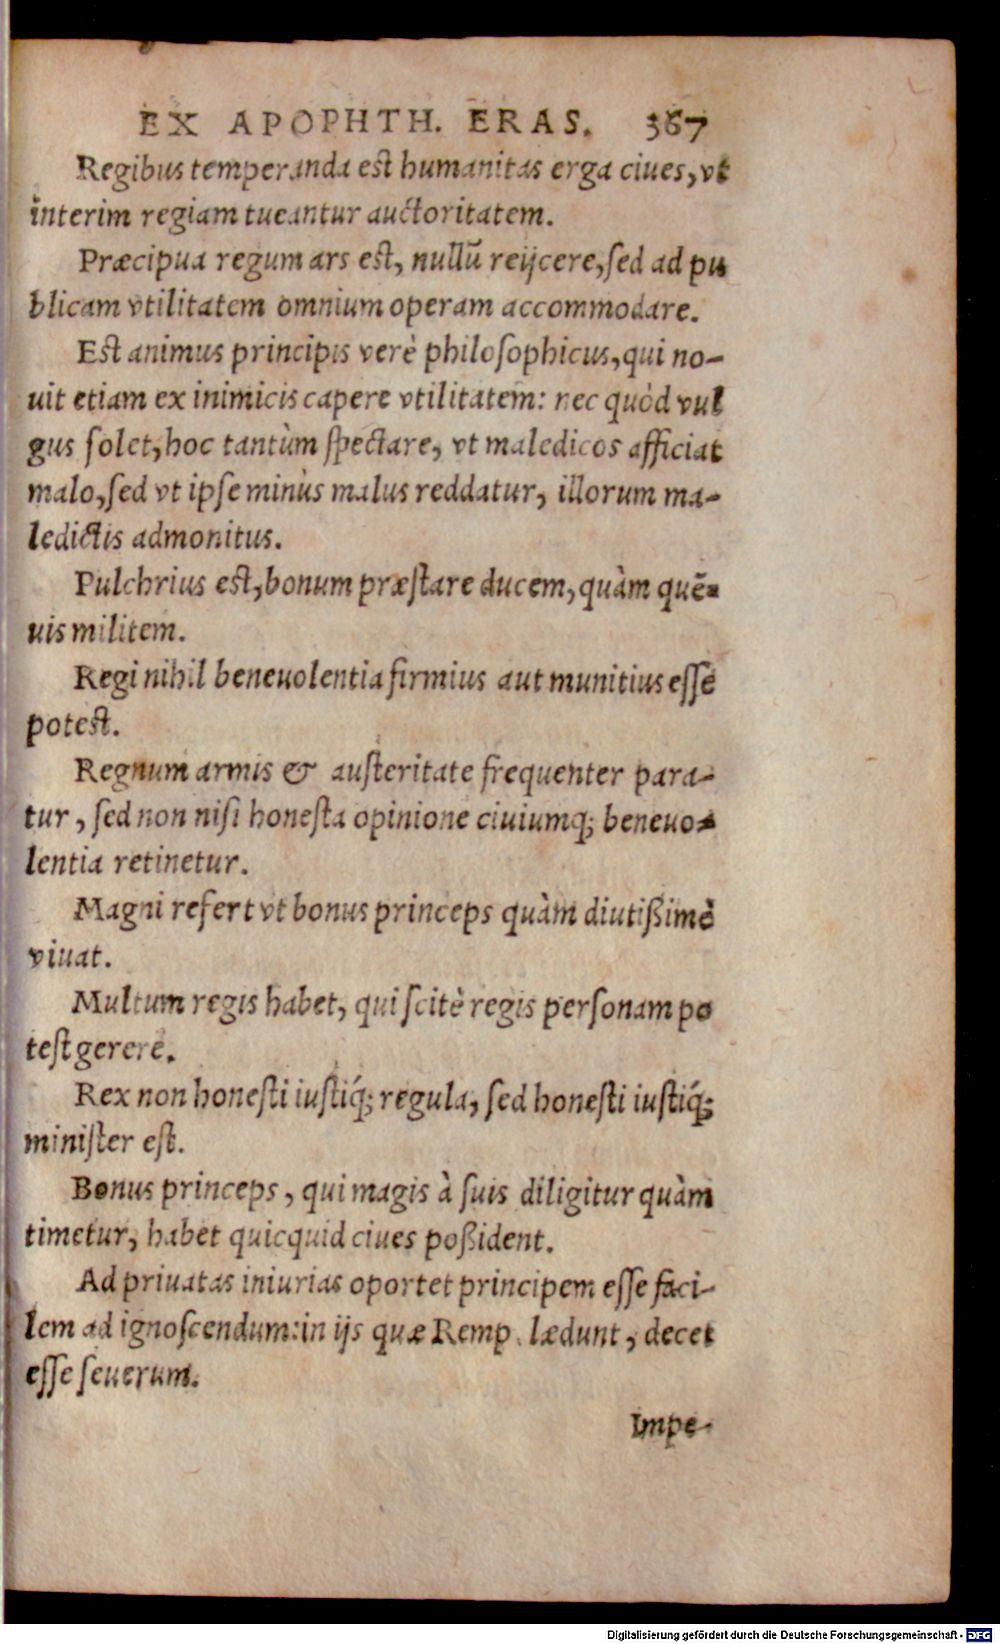 EX APOPHTH. ERAS. 367
Regibus temperanda est humanitas erga ciues, vt
interim regiam tueantur auctoritatem.
Præcipua regum ars est, nullũ reijcere, sed ad pu
blicam vtilitatem omnium operam accommodare.
Est animus principis verè philosophicus, qui no-
uit etiam ex inimicis capere vtilitatem: nec quòd vul
gus solet, hoc tantùm spectare, vt maledicos afficiat
malo, sed vt ipse minùs malus reddatur, illorum ma-
ledictis admonitus.
Pulchrius est, bonum præstare ducem, quàm quẽ-
uis militem.
Regi nihil beneuolentia firmius aut munitius esse
potest.
Regnum armis & austeritate frequenter para-
tur, sed non nisi honesta opinione ciuiumq; beneuo-
lentia retinetur.
Magni refert vt bonus princeps quàm diutißimè
viuat.
Multum regis habet, qui scitè regis personam po
test gerere.
Rex non honesti iustiq́; regula, sed honesti iustiq́;
minister est.
Bonus princeps, qui magis à suis diligitur quàm
timetur, habet quicquid ciues poßident.
Ad priuatas iniurias oportet principem esse faci-
lem ad ignoscendum: in ijs quæ Remp. lædunt, decet
esse seuerum.
Impe-
Digitalisierung gefördert durch die Deutsche Forschungsgemeinschaft - DFG